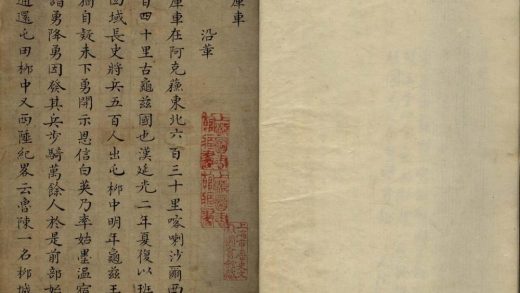 庫車
沿革
庫車在阿克蘇東北六百三十里喀喇沙爾西
百四十里古龜茲國也漢延光二年夏復以班
西域長史將兵五百人出屯柳中明年龜茲王
猶自疑未下勇開示恩信白英乃率姑墨溫宿
詣降勇因發其兵步騎萬餘人於是前部始
通還屯田柳中又西陲紀畧云魯陳一名柳城